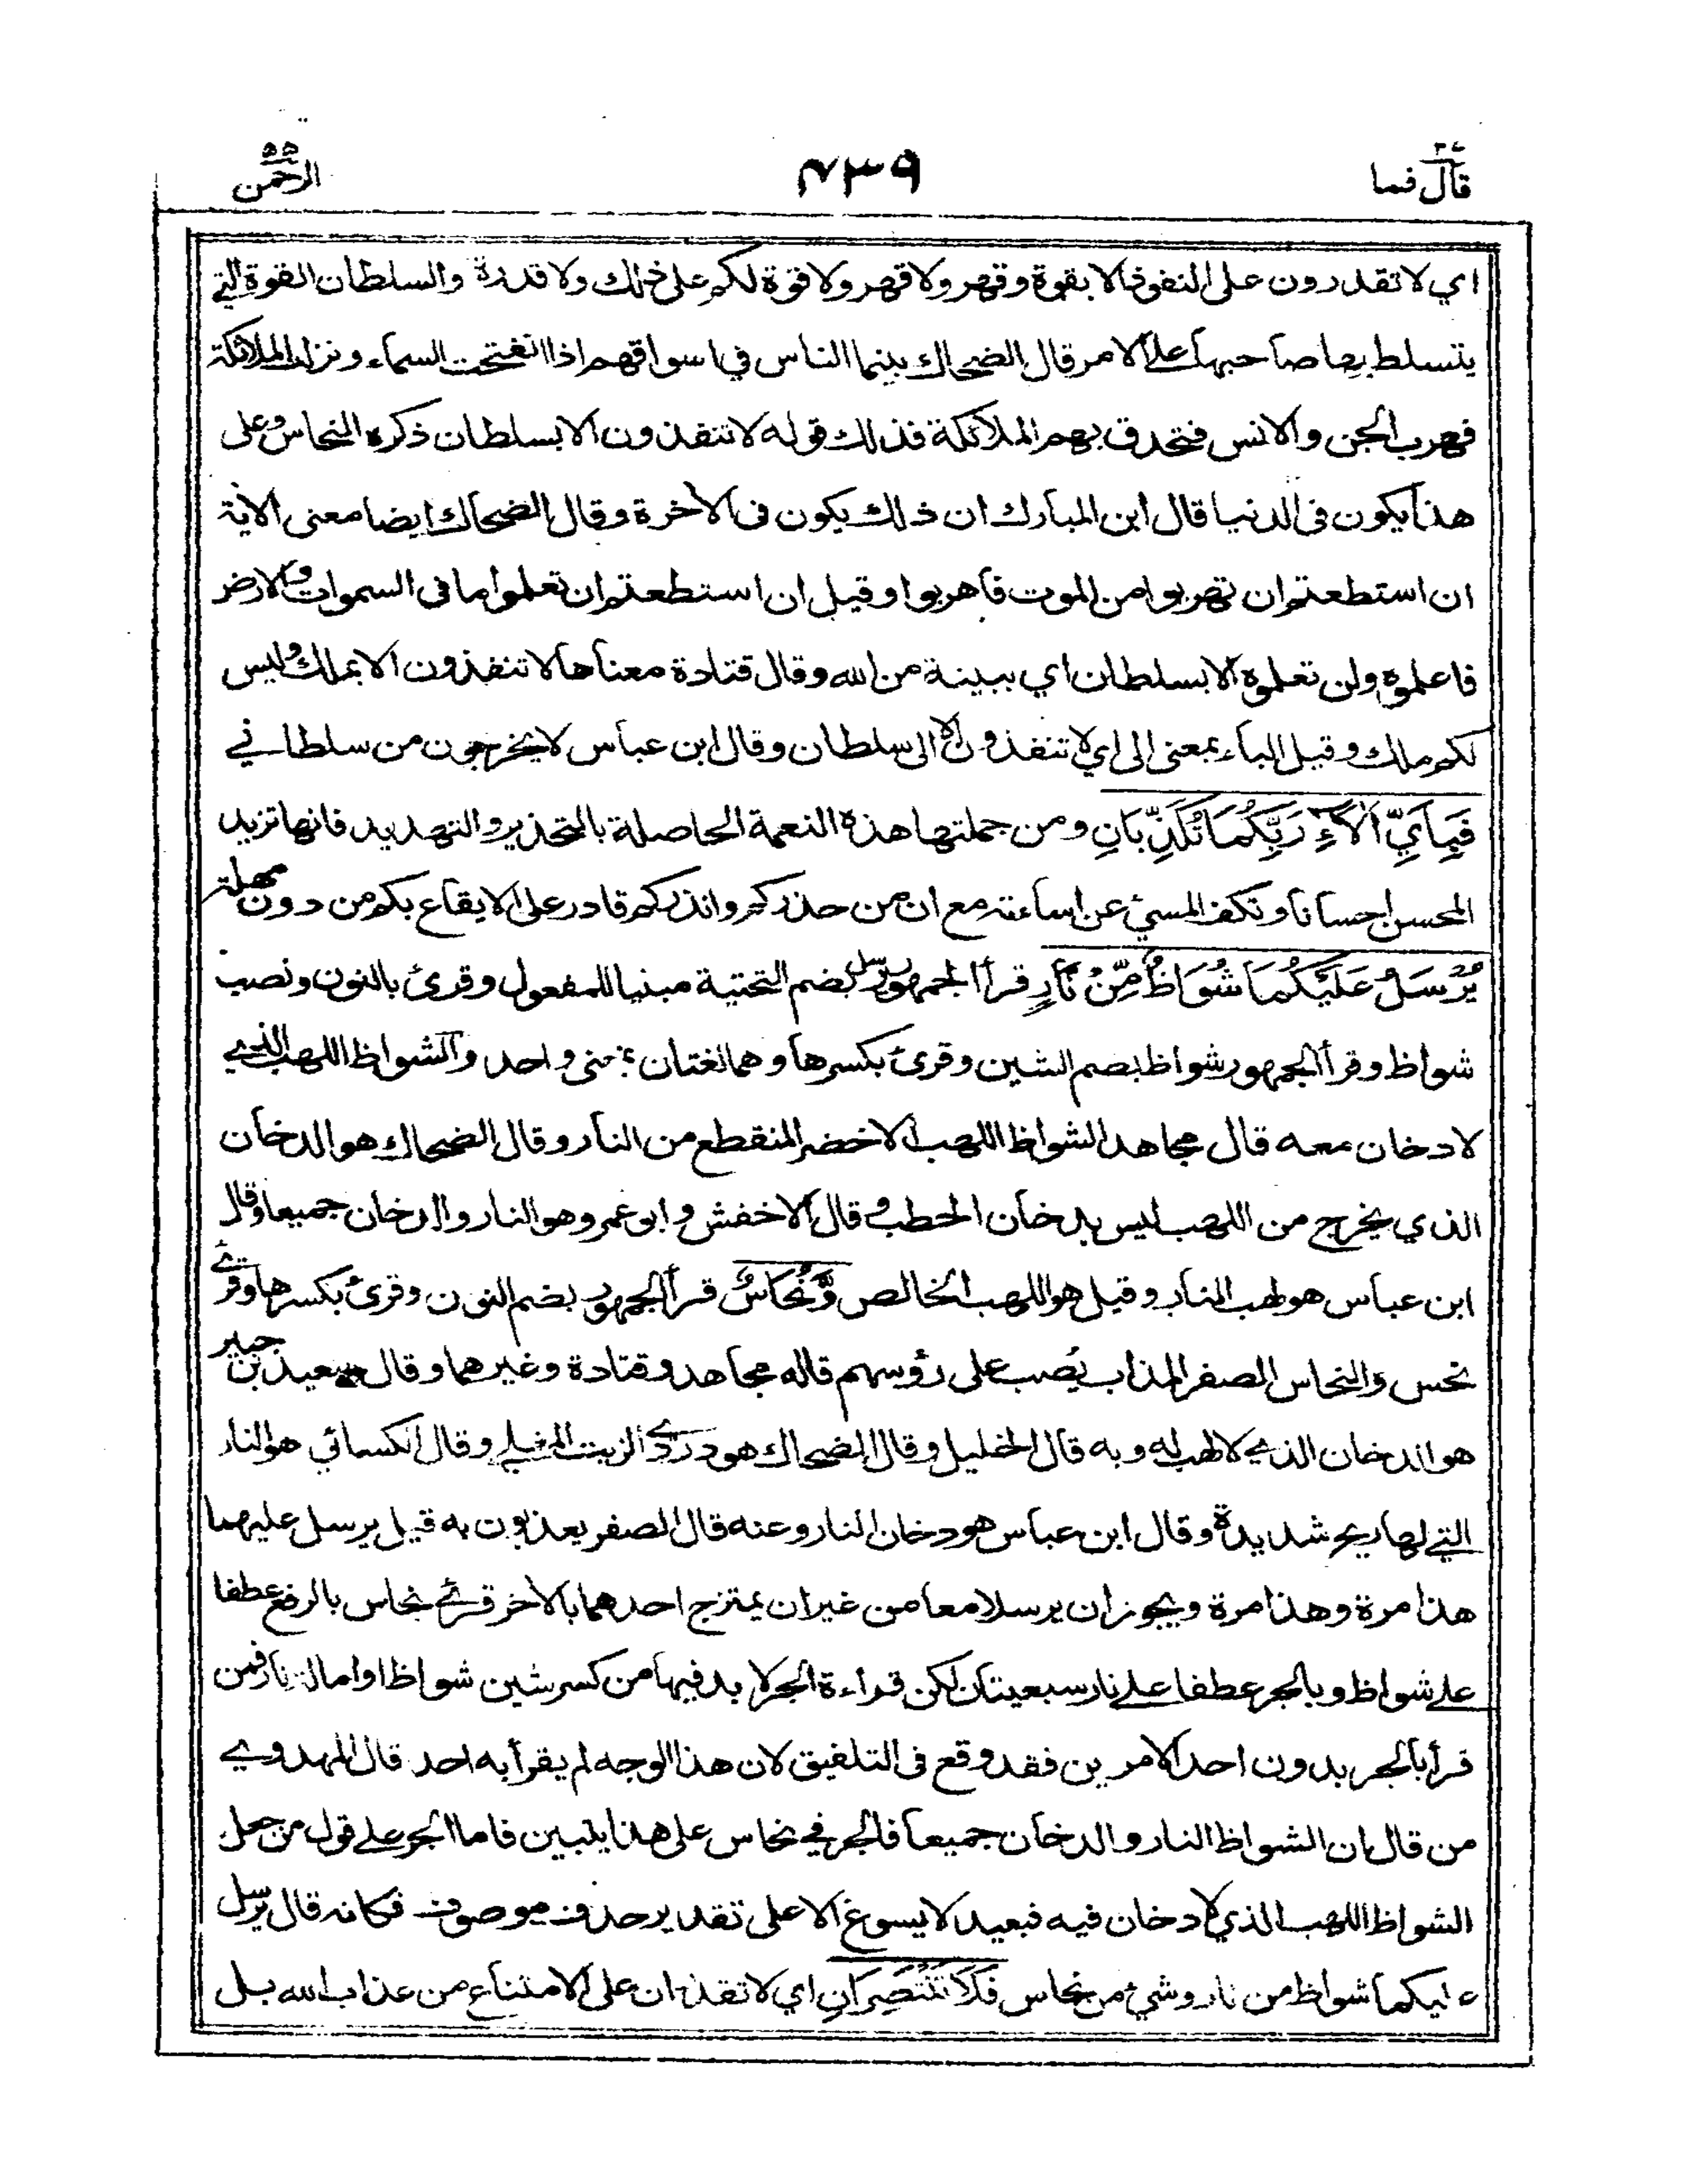 قال فما ٢٧
٧٣٩
الرحمن ٥٥
اي لا تقدرون على النفوذ الا بقوة وقهر ولا قهر ولا قوة لكم على ذلك ولا قدرة والسلطان القوة التي
يتسلط بها صاحبها على الامر قال الضحاك بينما الناس في اسواقهم اذا انفتحت السماء ونزلت الملائكة
فهرب الجن والانس فتحدق بهم الملائكة فذلك قوله لا تنفذون الا بسلطان ذكره النحاس وعلى
هذا يكون فى الدنيا قال ابن المبارك ان ذلك يكون فى الاخرة وقال الضحاك ايضا معنى الاية
ان استطعتم ان تهربوا من الموت فاهربوا وقيل ان استطعتم ان تعلموا ما فى السموات والارض
فاعلموه ولن تعلموه الا بسلطان اي ببينة من الله وقال قتادة معناها لا تنفذون الا بملك وليس
لكم ملك وقيل الباء بمعنى الى اي لا تنفذون الا الى سلطان وقال ابن عباس لا يخرجون من سلطاني
فَبِأَيِّ اٰلَاۤءِ رَبِّكُمَا تُكَذِّبَانِ ومن جملتها هذه النعمة الحاصلة بالتحذير والتهديد فانها تزيد
المحسن احسانا وتكف المسيئ عن اساءته مع ان من حذركم وانذركم قادر على الايقاع بكم من دون مهلة
يُرْسَلُ عَلَيْكُمَا شُوَاظٌ مِّنْ نَّارٍ قرأ الجمهور يرسل بضم التحتية مبنيا للمفعول وقرئ بالنون ونصب
شواظ وقرأ الجمهور شواظ بضم الشين وقرئ بكسرها وهما لغتان بمعنى واحد والشواظ اللهب الذي
لا دخان معه قال مجاهد الشواظ اللهب الاخضر المنقطع من النار وقال الضحاك هو الدخان
الذي يخرج من اللهب ليس بدخان الحطب وقال الاخفش وابو عمرو هو النار والدخان جميعا وقال
ابن عباس هو لهب النار وقيل هو اللهب الخالص وَّنُحَاسٌ قرأ الجمهور بضم النون وقرئ بكسرها وقرئ
نحس والنحاس الصفر المذاب يُصب على رؤسهم قاله مجاهد وقتادة وغيرهما وقال سعيد بن جبير
هو الدخان الذي لا لهب له وبه قال الخليل وقال الضحاك هو دردي الزيت المغلي وقال الكسائي هو النار
التي لها ريح شديدة وقال ابن عباس هو دخان النار وعنه قال الصفر يعذبون به قيل يرسل عليهما
هذا مرة وهذا مرة ويجوز ان يرسلا معا من غير ان يمتزج احدهما بالاخر قرئ نحاس بالرفع عطفا
على شواظ وبالجر عطفا على نار سبعيتان لكن قراءة الجر لا بد فيها من كسر شين شواظ او امالة نار فمن
قرأ بالجر بدون احد الامرين فقد وقع فى التلفيق لان هذا الوجه لم يقرأ به احد قال المهدوي
من قال ان الشواظ النار والدخان جميعا فالجر في نحاس على هذا يتبين فاما الجر على قول من جعل
الشواظ اللهب الذي لا دخان فيه فبعيد لا يسوغ الا على تقدير حذف موصوف فكانه قال يرسل
عليكما شواظ من نار وشيئ من نحاس فَلَا تَنْتَصِرَانِ اي لا تقدران على الامتناع من عذاب الله بل